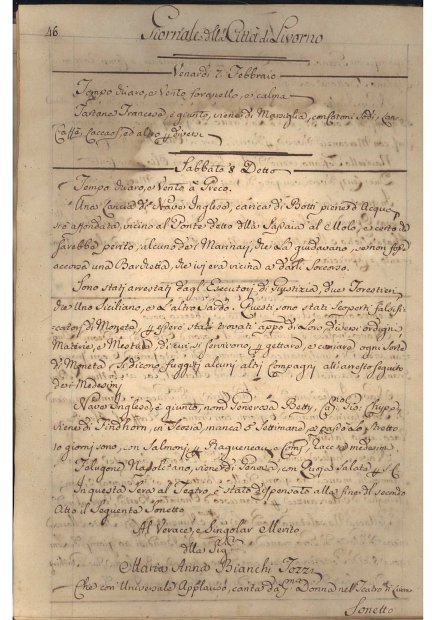 46.
Giornale della Città di Livorno
Venardi 7 Febbraio
Tempo chiaro, e Vento foranello, e calma
Tartana Francesa, è giunto, viene di Marsiglia, con Cotoni Sodi,
Caffà, Caccao, ed altro
Sabbato 8 Detto
Tempo chiaro, e Vento à Greco.
Una Lancia di Nave Inglesa, carica di Botti piene d'Acqua
s'è affondata, vicino al Ponte detto della Sassaia al Molo, e certo che
sarebbe perito, alcuno dei Marinaj, che la guidavano, se non foss
accorsa una Barchetta, che ivi era vicina a darli Soccorso.
Sono stati arrestati dagl' Esecutori di Giustizia, due Forestieri
che Uno Siciliano, e L'altro Sardo. Questi sono stati Scoperti falsifi
catori di Moneta, essere stati trovati appo di Loro, diversi ordigni,
Materie, e Metalli di cui si servivano gettare, e coniare ogni Sorte
di Moneta. Si dicono fuggiti alcuni altri Compagni all' arresto seguito
dei Medesimi
Nave Inglesa, è giunto, nom Generosa Betty, Cap.no Gio:
viene di Findhorn, in Scozia, manca 5 Settimane, e passò lo Stretto
giorni sono, con Salmoni, Ragueneau, Racc. medesimi
Napolitano, viene di Genova, con Quoja Salata
In questa Sera al Teatro, è Stato dispensato alla fine del Secondo
Atto il Seguente Sonetto
Al Verace, e Singolar Merito
della Sig.ra
Maria Anna Bianchi Tozzi
Che con Universale Applauso, canta da P.ma Donna nel Teatro di Livorno
Sonetto